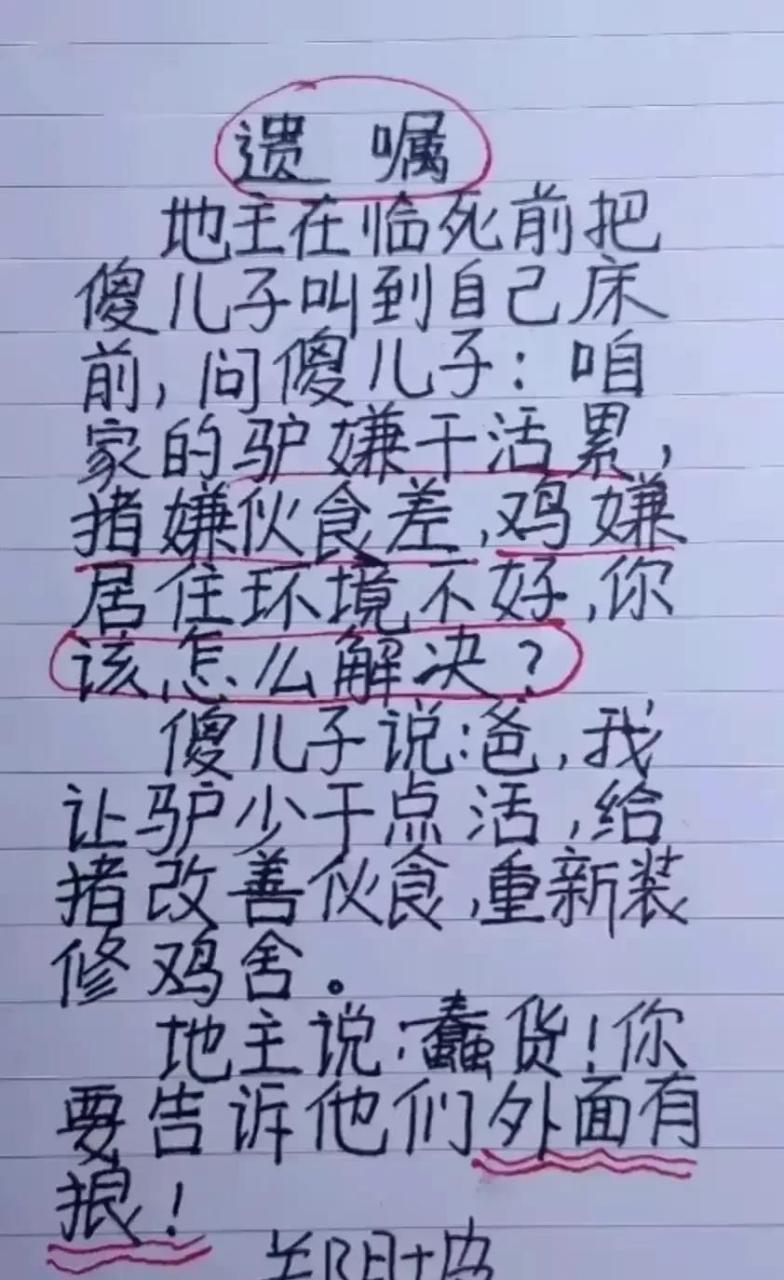 遗 嘱
地主在临死前把
傻儿子叫到自己床
前,问傻儿子:咱
家的驴嫌干活累,
猪嫌伙食差,鸡嫌
居住环境不好,你
该怎么解决?
傻儿子说:爸,我
让驴少干点活,给
猪改善伙食,重新装
修鸡舍。
地主说:蠢货!你
要告诉他们外面有
狼!